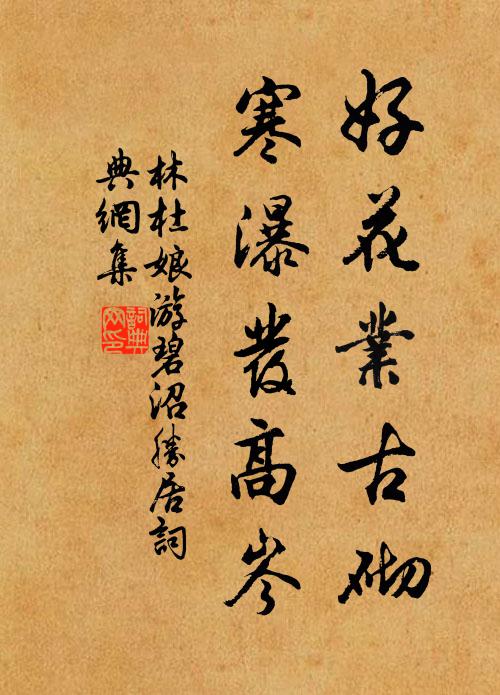 好花業古砌
寒瀑發高岑
林杜娘游碧沼勝居詞
典網集
詞典
网印